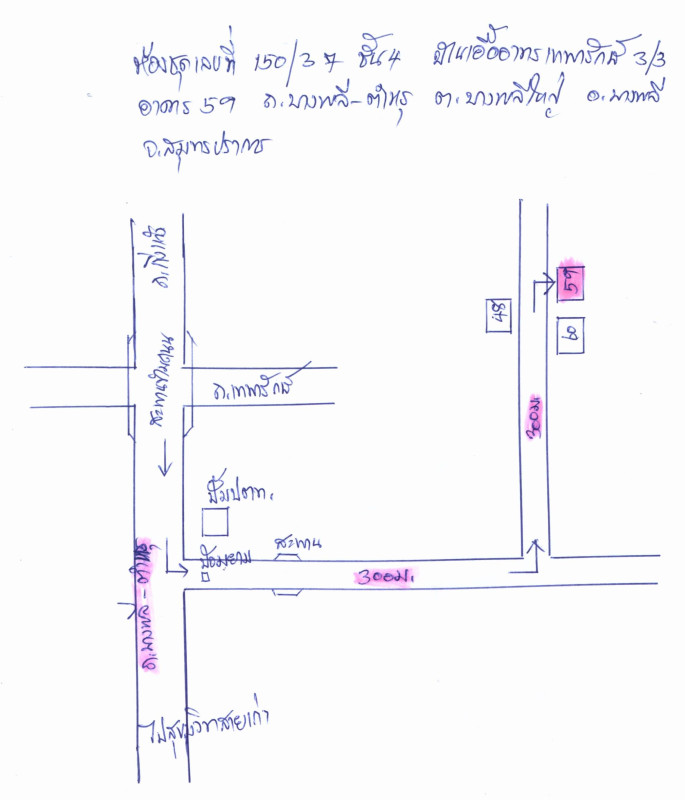 ห้องชุดเลขที่ 150/37 ชั้น 4 บ้านเอื้ออาทรเทพารักษ์ 3/3
อาคาร 59 ถ.บางพลี-ตำหรุ ต.บางพลีใหญ่ อ.บางพลี
จ.สมุทรปราการ
ถ.กิ่งแก้ว
59
48
60
สะพานข้ามถนน
ถ.เทพารักษ์
300ม.
ปั๊มปตท.
สะพาน
ป้อมยาม
300ม.
ถ.บางพลี-ตำหรุ
ไปสุขุมวิทสายเก่า